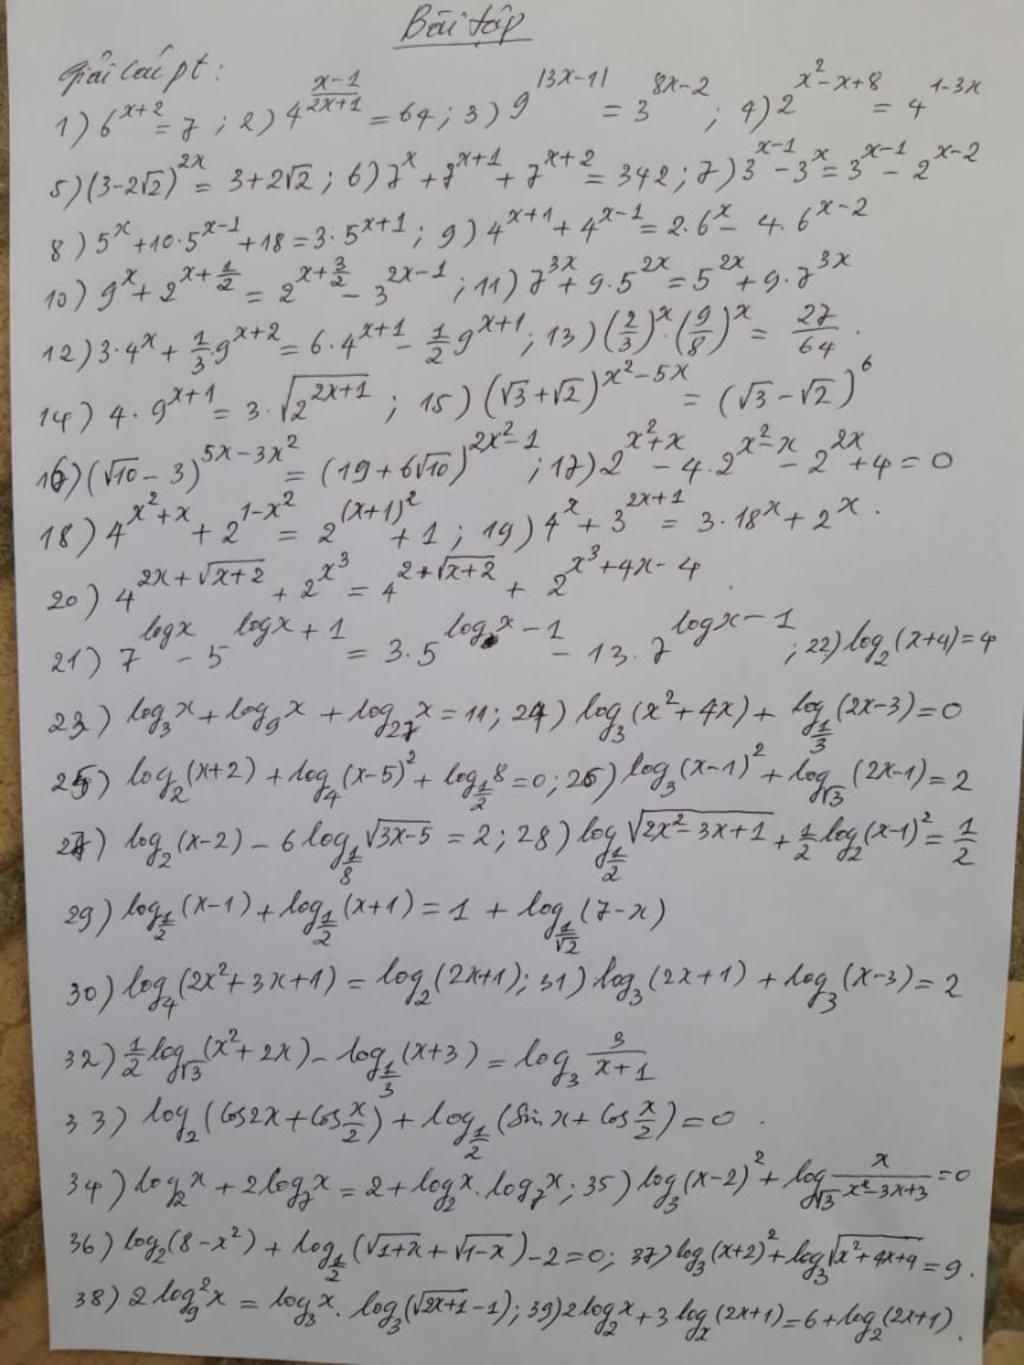 Bài tập
Giải các pt:
1) 6^{x+2} = 7 ; 2) 4^{\frac{x-1}{2x+1}} = 64 ; 3) 9^{|3x-1|} = 3^{8x-2} ; 4) 2^{x^2-x+8} = 4^{1-3x}
5) (3-2√2)^{2x} = 3+2√2 ; 6) 7^x + 7^{x+1} + 7^{x+2} = 342 ; 7) 3^{x-1} - 3^x = 3^{x-1} - 2^{x-2}
8) 5^x + 10·5^{x-1} + 18 = 3·5^{x+1} ; 9) 4^{x+1} + 4^{x-1} = 2.6^x - 4.6^{x-2}
10) 9^x + 2^{x+\frac{1}{2}} = 2^{x+\frac{3}{2}} - 3^{2x-1} ; 11) 7^{3x} + 9·5^{2x} = 5^{2x} + 9·7^{3x}
12) 3·4^x + \frac{1}{3}·9^{x+2} = 6·4^{x+1} - \frac{1}{2}9^{x+1} ; 13) (\frac{2}{3})^x·(\frac{9}{8})^x = \frac{27}{64}.
14) 4·9^{x+1} = 3·\sqrt{2^{2x+1}} ; 15) (√3+√2)^{x^2-5x} = (√3-√2)^6
16) (√10-3)^{5x-3x^2} = (19+6√10)^{2x^2-1} ; 17) 2^{x^2+x} - 4.2^{x^2-x} - 2^{2x} + 4 = 0
18) 4^{x^2+x} + 2^{1-x^2} = 2^{(x+1)^2} + 1 ; 19) 4^x + 3^{2x+1} = 3·18^x + 2^x.
20) 4^{2x+\sqrt{x+2}} + 2^{x^3} = 4^{2+\sqrt{x+2}} + 2^{x^3+4x-4}.
21) 7^{logx} - 5^{logx+1} = 3.5^{logx-1} - 13.7^{logx-1} ; 22) log_2(x+4) = 4
23) log_3 x + log_9 x + log_{27} x = 11 ; 24) log_3(x^2+4x) + log_{\frac{1}{3}}(2x-3) = 0
25) log_2(x+2) + log_4(x-5)^2 + log_{\frac{1}{2}}8 = 0 ; 26) log_3(x-1)^2 + log_{√3}(2x-1) = 2
27) log_2(x-2) - 6log_{\frac{1}{8}}\sqrt{3x-5} = 2 ; 28) log_{\frac{1}{2}}\sqrt{2x^2-3x+1} + \frac{1}{2}log_2(x-1)^2 = \frac{1}{2}
29) log_{\frac{1}{2}}(x-1) + log_{\frac{1}{2}}(x+1) = 1 + log_{\frac{1}{√2}}(7-x)
30) log_4(2x^2+3x+1) = log_2(2x+1) ; 31) log_3(2x+1) + log_3(x-3) = 2
32) \frac{1}{2}log_{√3}(x^2+2x) - log_{\frac{1}{3}}(x+3) = log_3 \frac{3}{x+1}
33) log_2(Cos2x+Cos\frac{x}{2}) + log_{\frac{1}{2}}(Sinx+Cos\frac{x}{2}) = 0.
34) log_2 x + 2log_7 x = 2 + log_2 x.log_7 x ; 35) log_3(x-2)^2 + log_{√3}\frac{x}{x^2-3x+3} = 0
36) log_2(8-x^2) + log_{\frac{1}{2}}(\sqrt{1+x}+\sqrt{1-x}) - 2 = 0 ; 37) log_3(x+2)^2 + log_3\sqrt{x^2+4x+4} = 9.
38) 2log_9^2 x = log_3 x.log_3(\sqrt{2x+1}-1) ; 39) 2log_2 x + 3log_x(2x+1) = 6 + log_2(2x+1).